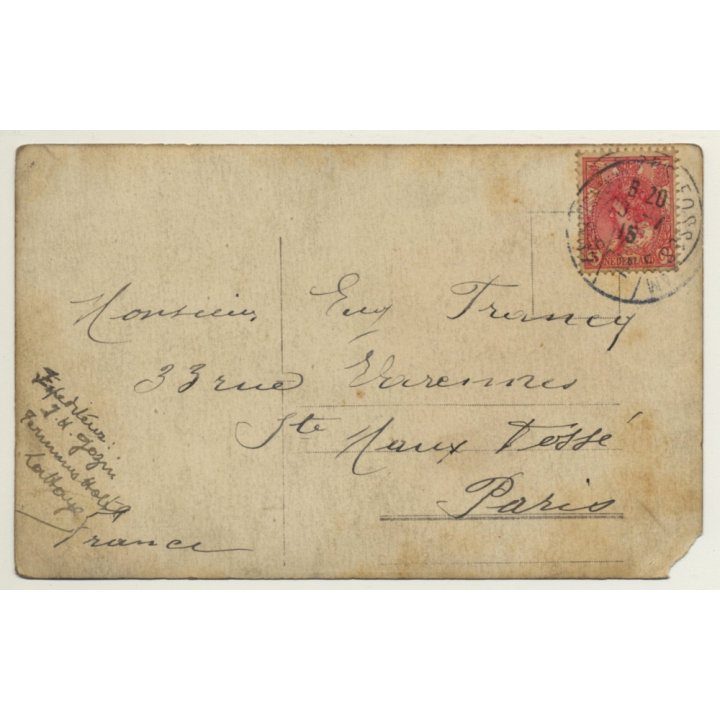 Monsieur Eug Francy
33 rue Varennes
Ste Maux Fossé
Paris
France
Expéditeur:
J. H.
Terminus Hotel
La Haye
8.20
15
5
NEDERLAND